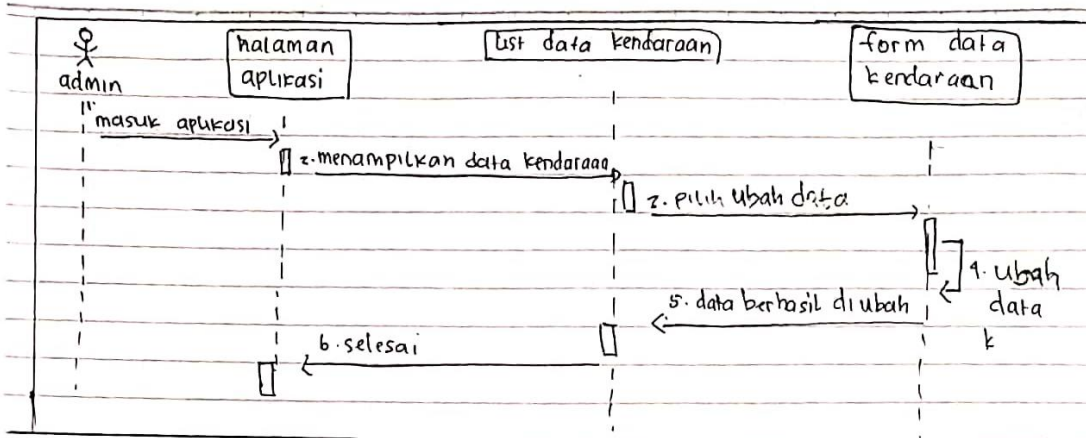 admin
halaman
aplikasi
list data kendaraan
form data
kendaraan
1. masuk aplikasi
2. menampilkan data kendaraaa
2. pilih ubah data
4. ubah
data
k
5. data berhasil diubah
6. selesai